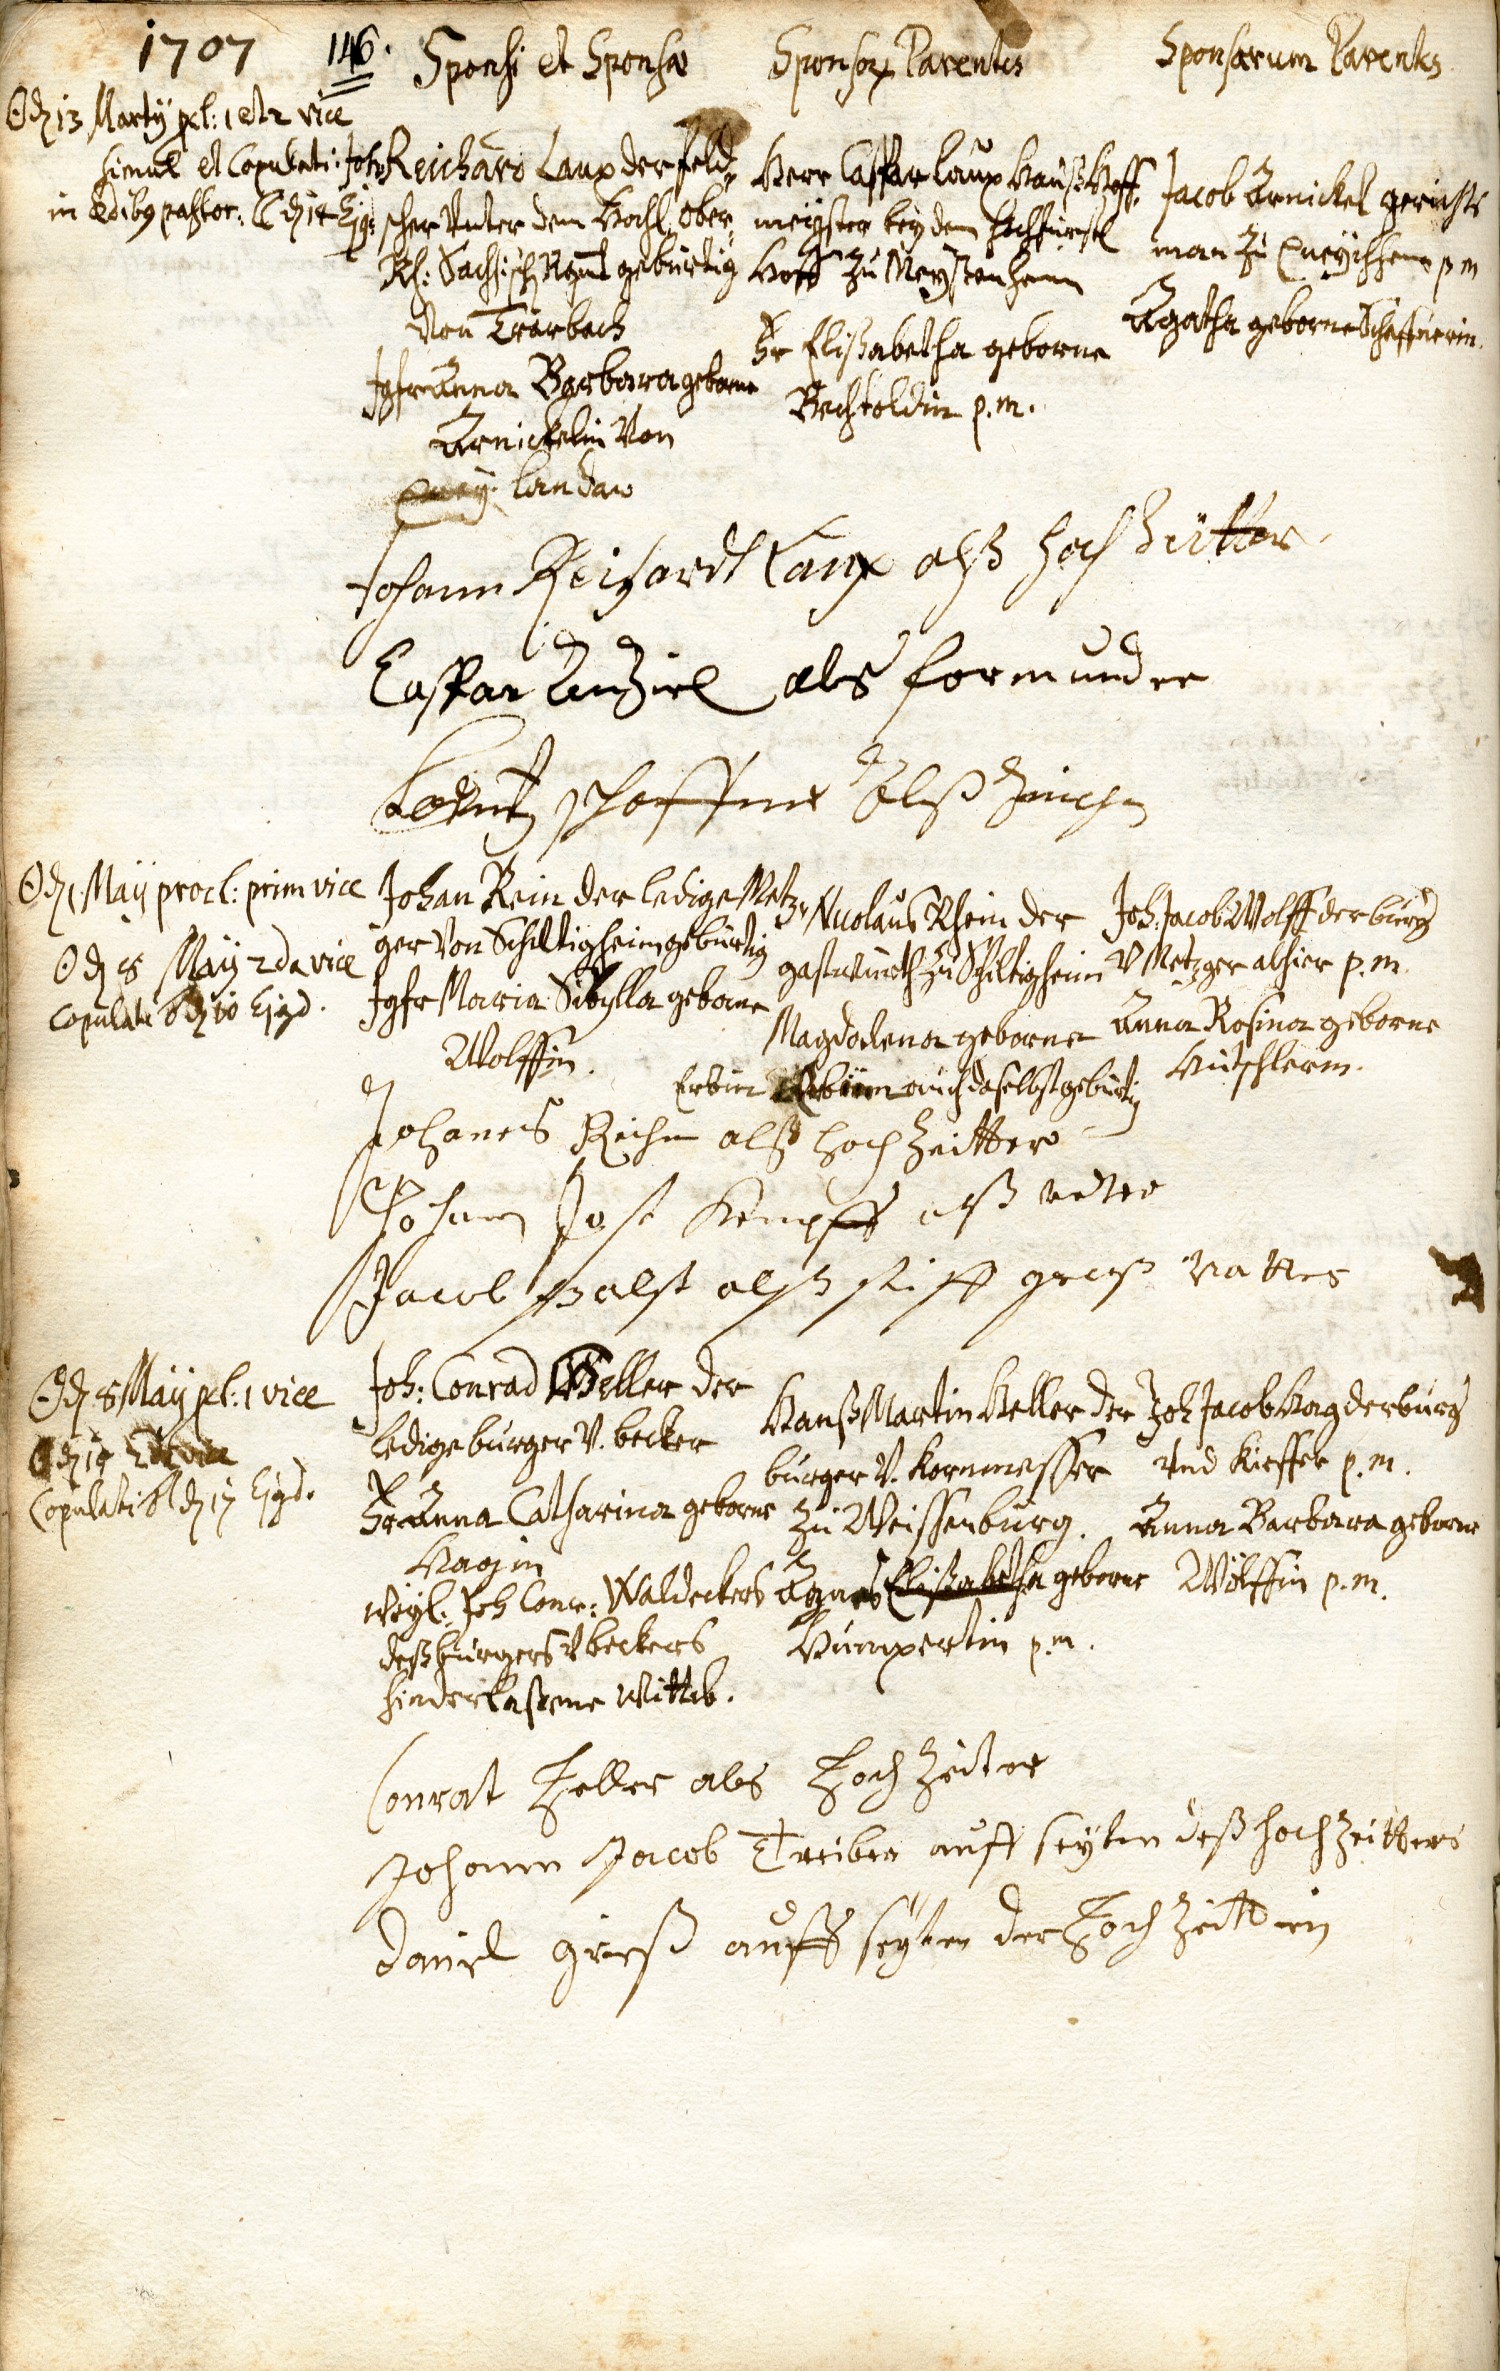 1707
146.
Sponsi et Sponsæ
Sponsor Parentes
Sponsarum Parentes
⊙ d 13 Martÿ pcl: 1 et 2 vice
simul et Copulati:
in ædibg pastor. d 14 Ejg:
Joh Reichard Laux der feld
scher Unter dem Hochl. Ober
Rh: Sachsisch Regmt gebürtig
Von Trarbach
Jgfr Anna Barbara geborne
Arnickelin Von
Landaw
Herr Caspar Laux Hauß Hoff
meÿster beÿ dem hochfürstl
Hoff zu Meÿsenheim
Fr Elisabetha geborne
Bechtoldin p.m.
Jacob Arnickel gerichts
man zu p m
Agatha geborne Schaffnerin.
Johann Reichardt Laux alß Hochzeitter
Caspar als formunder
Lorentz schaffner Alß Zeugen
⊙ d 1 Maÿ procl: prim vice
⊙ d 8 Maÿ 2da vice
Copulati d 10 Ejgd.
Johan Rein der ledige Metz
ger Von Schiltigheim gebürtig
Jgfr Maria Sibylla geborne
Wolffin.
Nicolaus Rhein der
gastwirth zu Schiltigheim
Magdalena geborne
Erbin auch daselbst gebürtig
Joh. Jacob Wolff der burg
V Metzger alhier p.m.
Anna Rosina geborne
Johanes Reihn alß hochzeitter
Johann Jost Kempff alß vetter
Jacob alß stiff groß vatter
⊙ d 8 Maÿ pcl: 1 vice
⊙ d 15 2 vice
Copulati d 17 Ejgd.
Joh: Conrad Heller der
ledige burger V. becker
Fr Anna Catharina geborne
Hagin
weyl. Joh Conr: Waldeckers
deß burgers V beckers
hinderlaßene Wittib.
Hanß Martin Heller der
burger V. Kornmesser
zu Weissenburg.
Agnes Elisabetha geborne
Humpertin p.m.
Joh Jacob Hag der burg
und Kieffer p.m.
Anna Barbara geborne
Wölffin p.m.
Conrat Heller als Hochzeiter
Johann Jacob Treiber auff seyten deß hochzeitters
Daniel grieß auff seÿten der Hochzeitterin